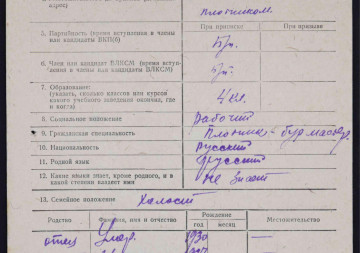 адрес)
плотником.
При приписке При призыве
5. Партийность (время вступления в члены
или кандидаты ВКП(б)
б/п.
6. Член или кандидат ВЛКСМ (время всту-
пления в члены или кандидаты ВЛКСМ)
б/п.
7. Образование:
(указать, сколько классов или курсов
какого учебного заведения окончил, где
и когда)
4 кл.
8. Социальное положение Рабочий
9. Гражданская специальность Плотник - бур мастер.
10. Национальность Русский
11. Родной язык Русский
12. Какие языки знает, кроме родного, и в
какой степени владеет ими
Не знает
13. Семейное положение Холост
Родство Фамилия, имя и отчество Рождение Местожительство
год месяц
отец —